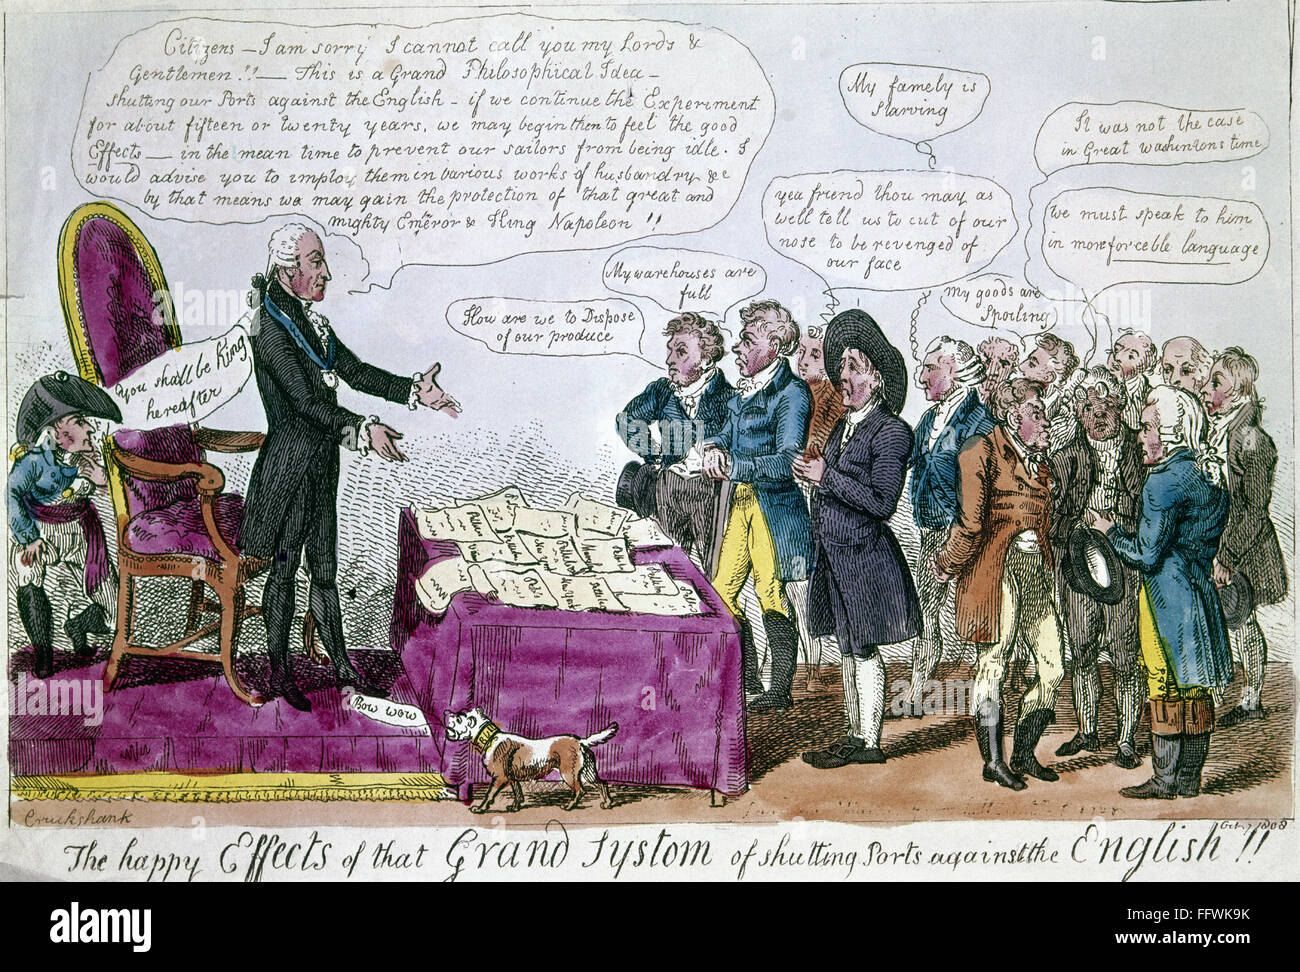 Citizens – I am sorry I cannot call you my Lords &
Gentlemen!! – This is a Grand Philosophical Idea –
shutting our Ports against the English – if we continue the Experiment
for about fifteen or twenty years, we may begin then to feel the good
Effects – in the mean time to prevent our sailors from being idle. I
would advise you to imploy them in various works of husbandry &c
by that means we may gain the protection of that great and
mighty Emperor & King Napoleon!!
You shall be King
hereafter
How are we to Dispose
of our produce
My warehouses are
full
My famely is
Starving
yea friend thou may as
well tell us to cut of our
nose to be revenged of
our face
My goods are
Spoiling
It was not the case
in Great washintons time
we must speak to him
in more forceble language
Bow wow
Cruckshank
Octr 1808
The happy Effects of that Grand Systom of shutting Ports against the English!!
alamy
Image ID: FFWK9K
www.alamy.com